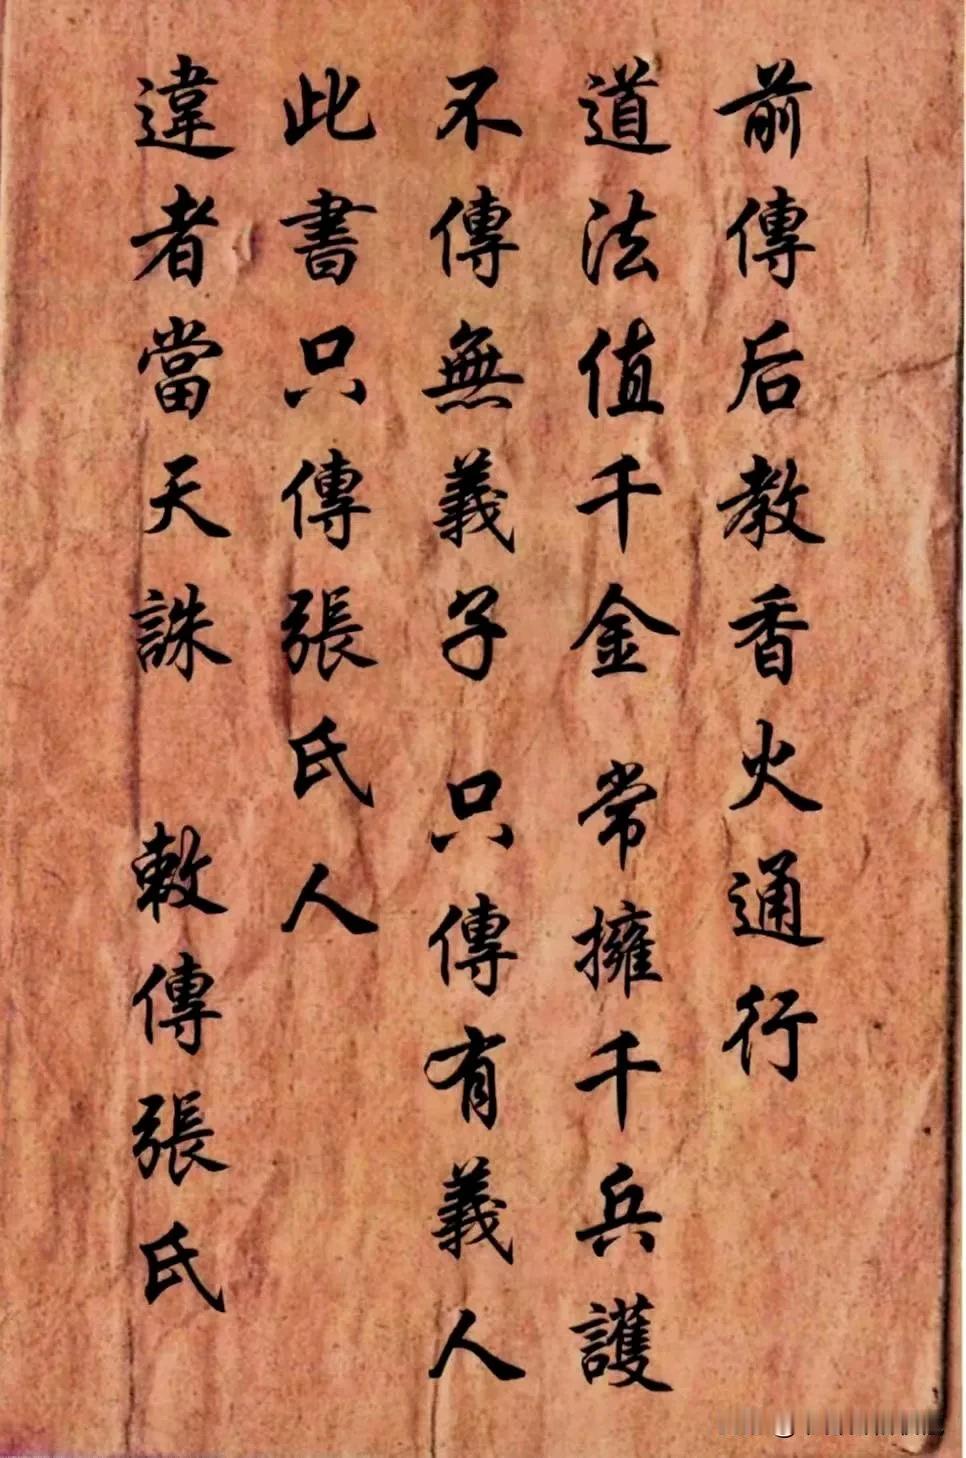 前傳后教香火通行
道法值千金 常擁千兵護
不傳無義子 只傳有義人
此書只傳張氏人
違者當天誅 敕傳張氏